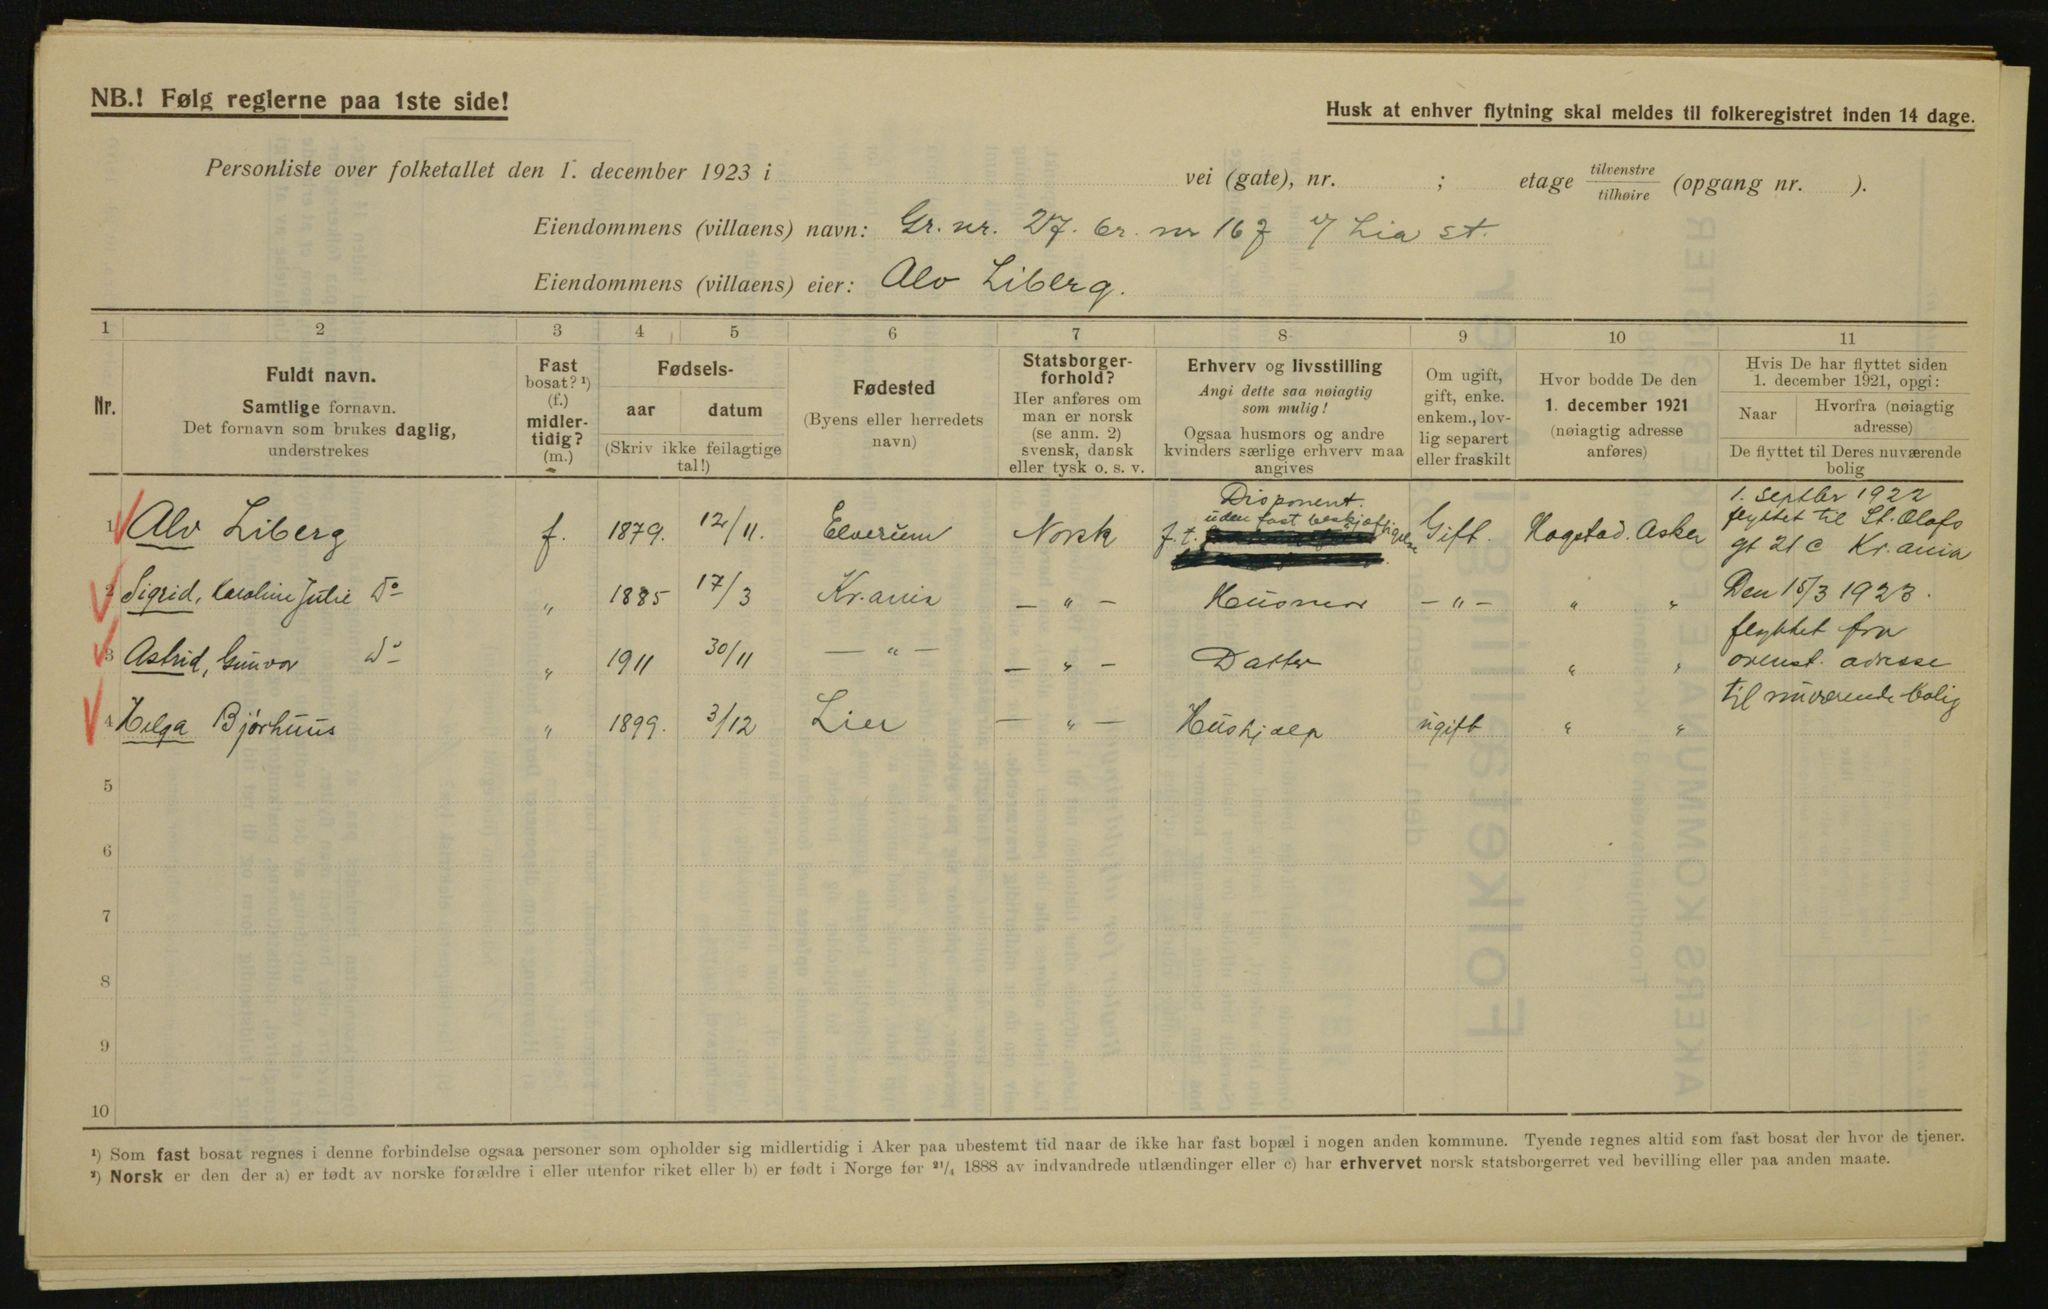 NB.! Følg reglerne paa 1ste side!
Husk at enhver flytning skal meldes til folkeregistret inden 14 dage.
Personliste over folketallet den 1. december 1923 i vei (gate), nr. ; etage tilvenstre / tilhøire (opgang nr. ).
Eiendommens (villaens) navn: Gr. nr. 27. br. nr 167 v/ Lia st.
Eiendommens (villaens) eier: Alv Liberg.
1 2 3 4 5 6 7 8 9 10 11
Nr.
Fuldt navn.
Samtlige fornavn.
Det fornavn som brukes daglig,
understrekes
Fast
bosat? ¹)
(f.)
midler-
tidig?
(m.)
Fødsels-
aar datum
(Skriv ikke feilagtige
tal!)
Fødested
(Byens eller herredets
navn)
Statsborger-
forhold?
Her anføres om
man er norsk
(se anm. 2)
svensk, dansk
eller tysk o. s. v.
Erhverv og livsstilling
Angi dette saa nøiagtig
som mulig!
Ogsaa husmors og andre
kvinders særlige erhverv maa
angives
Om ugift,
gift, enke.
enkem., lov-
lig separert
eller fraskilt
Hvor bodde De den
1. december 1921
(nøiagtig adresse
anføres)
Hvis De har flyttet siden
1. december 1921, opgi:
Naar Hvorfra (nøiagtig
adresse)
De flyttet til Deres nuværende
bolig
1 Alv Liberg f. 1879. 12/11. Elverum Norsk Disponent. f. t. uden fast beskjæftigelse Gift. Hogstad. Asker
1. septbr 1922
flyttet til St. Olafs
gt 21 c Kr.ania
2 Sigrid, Karoline Julie Do „ 1885 17/3 Kr.ania — „ — Husmor — „ — „ „ Den 15/3 1923.
flyttet fra
3 Astrid, Gunvor Do „ 1911 30/11 — „ — — „ — Datter „ „ ovenst. adresse
til nuværende bolig
4 Helga Bjørhuus „ 1899. 3/12 Lier — „ — Hushjælp ugift „ „
5
6
7
8
9
10
¹) Som fast bosat regnes i denne forbindelse ogsaa personer som opholder sig midlertidig i Aker paa ubestemt tid naar de ikke har fast bopæl i nogen anden kommune. Tyende regnes altid som fast bosat der hvor de tjener.
²) Norsk er den der a) er født av norske forældre i eller utenfor riket eller b) er født i Norge før 21/4 1888 av indvandrede utlændinger eller c) har erhvervet norsk statsborgerret ved bevilling eller paa anden maate.